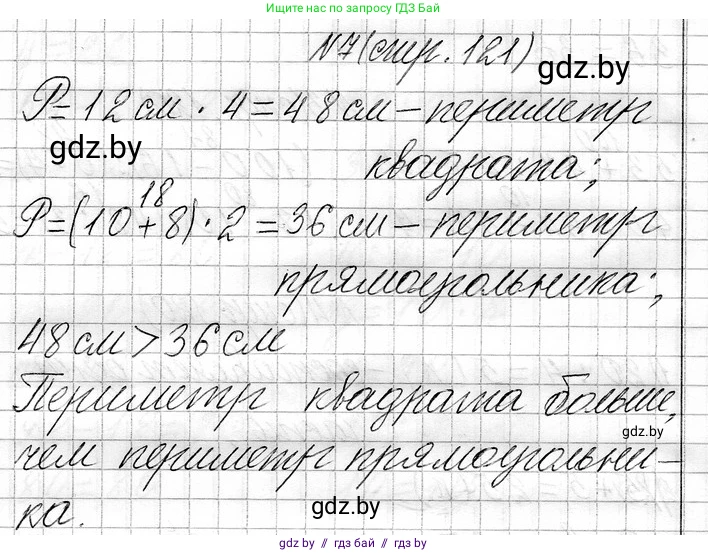 Ищите нас по запросу ГДЗ Бай
№7(стр. 121)
gdz.by
P=12см · 4=48см – периметр
gdz.by
квадрата;
18
P=(10+8)·2=36см – периметр
прямоугольника;
48см>36см
Периметр квадрата больше,
gdz.by
чем периметр прямоугольни-
gdz.by
ка.
gdz.by // гдз бай // gdz by